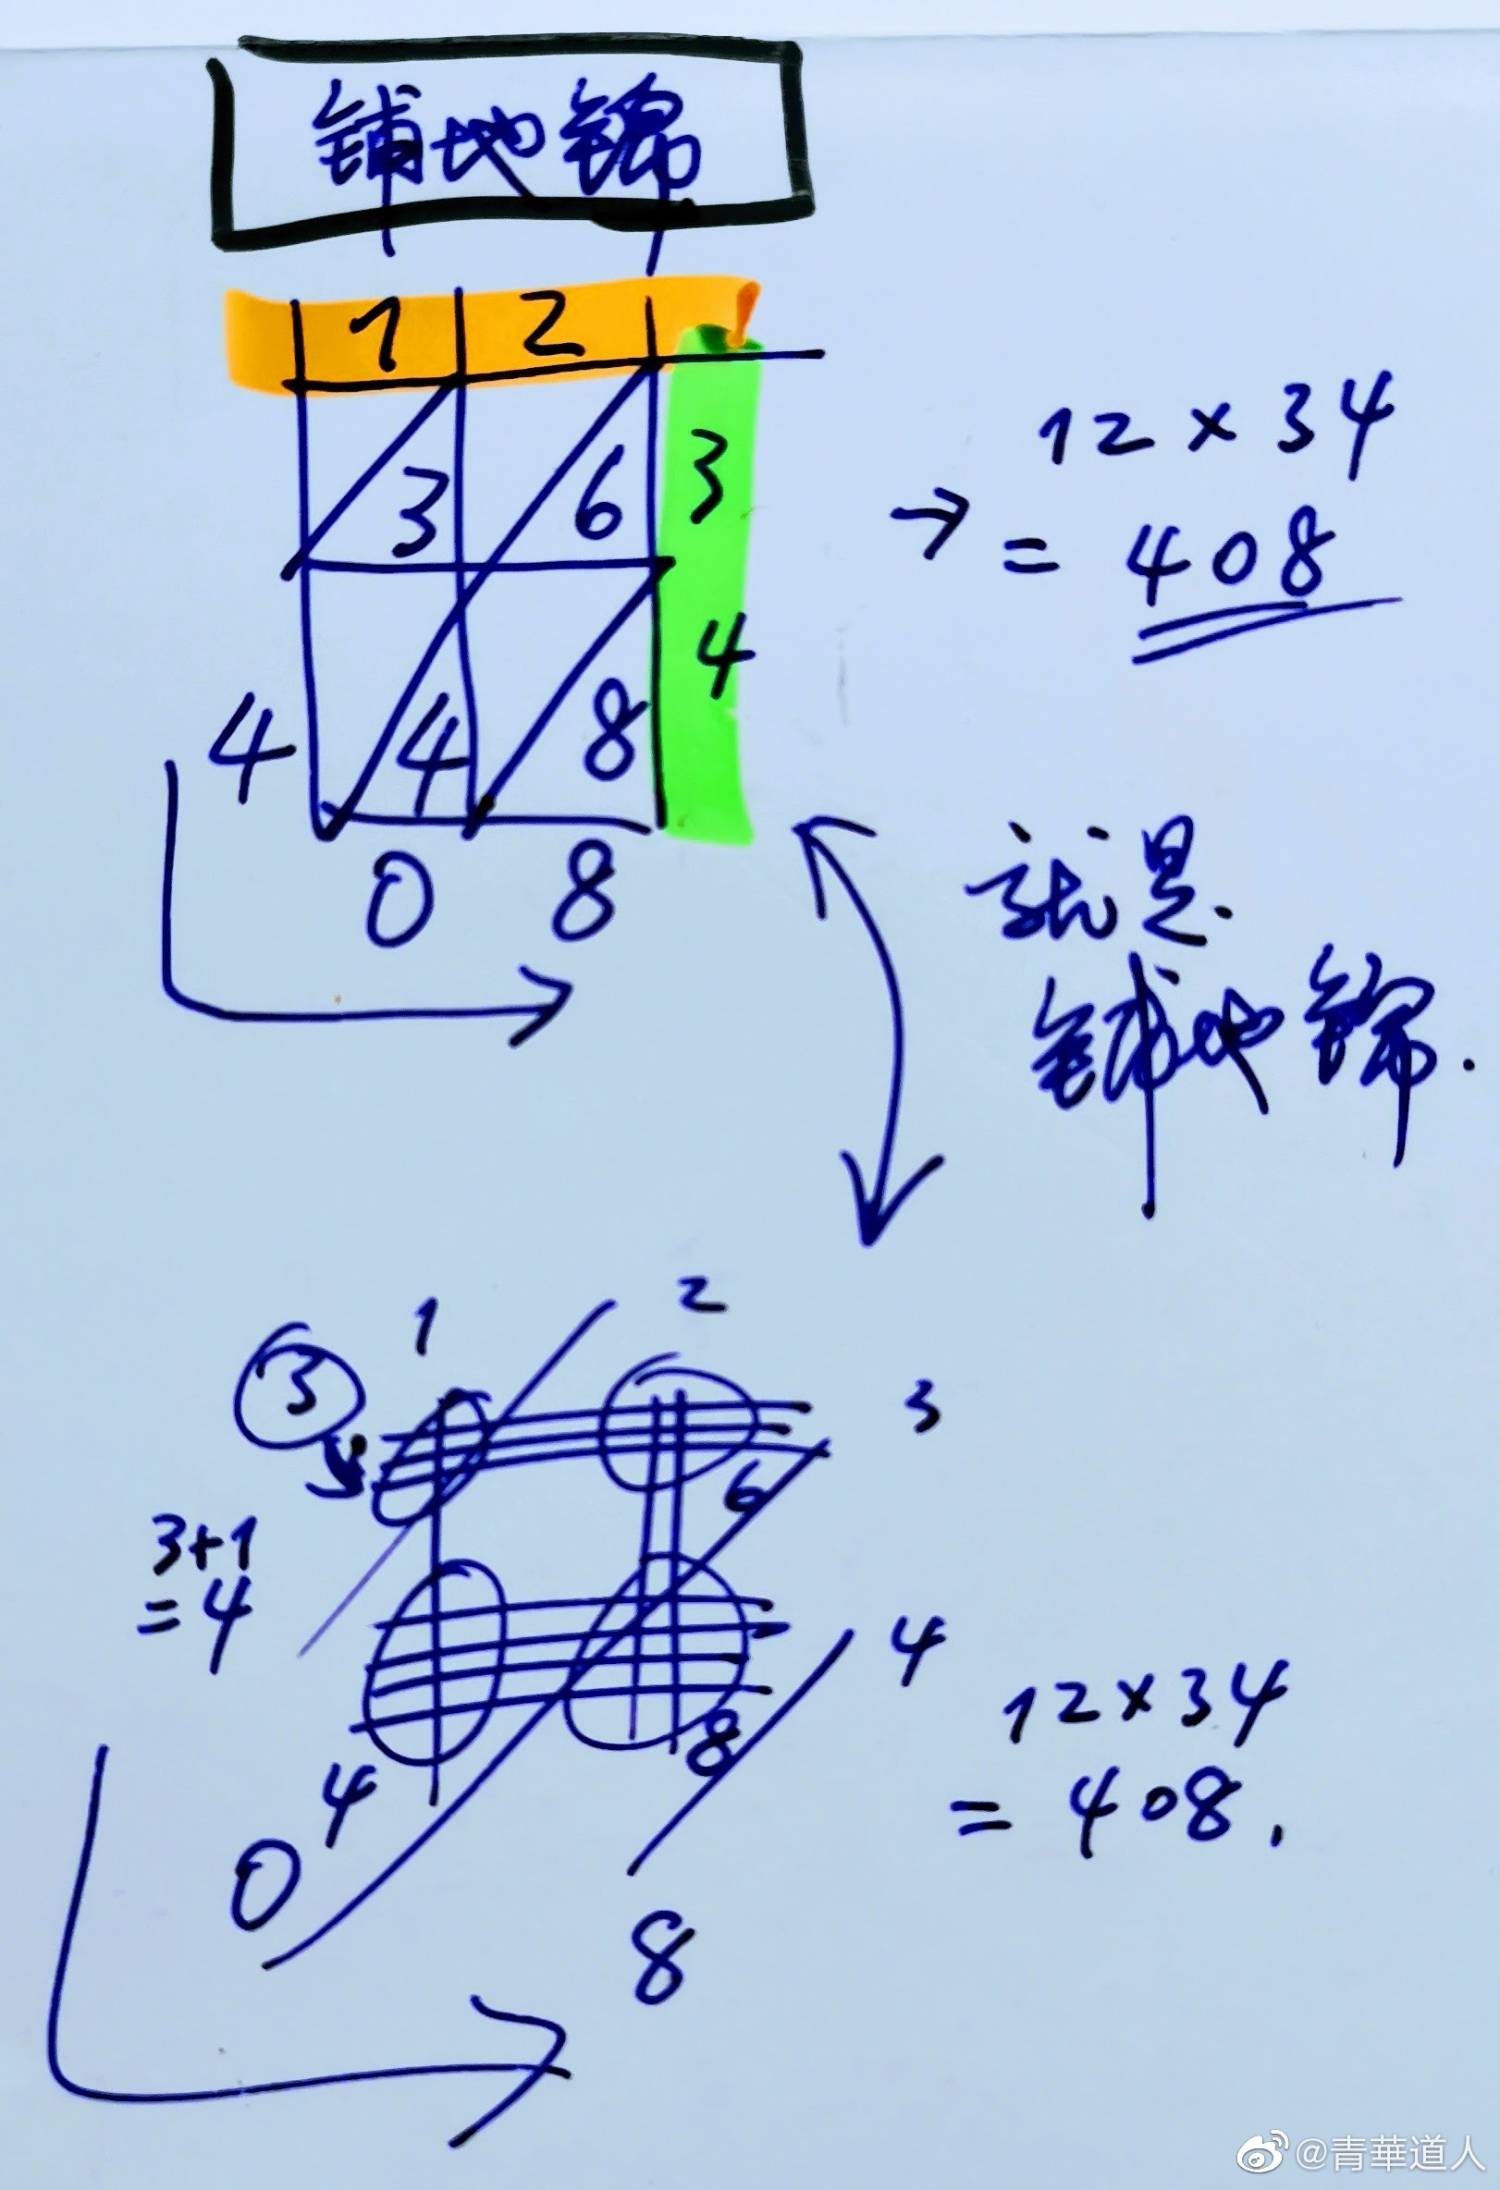 铺地锦
1 2
3 6 3
12×34
→ = 408
4 4 8 4
0 8
就是
铺地锦.
1 2
3
3
6
3+1
=4
4
4 8
12×34
=408.
0
8
@青華道人